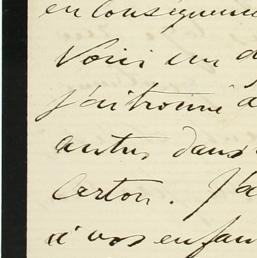 en conséquence
Voici un d
j'ai trouvé d
autres dans
carton. J'a
à vos enfan